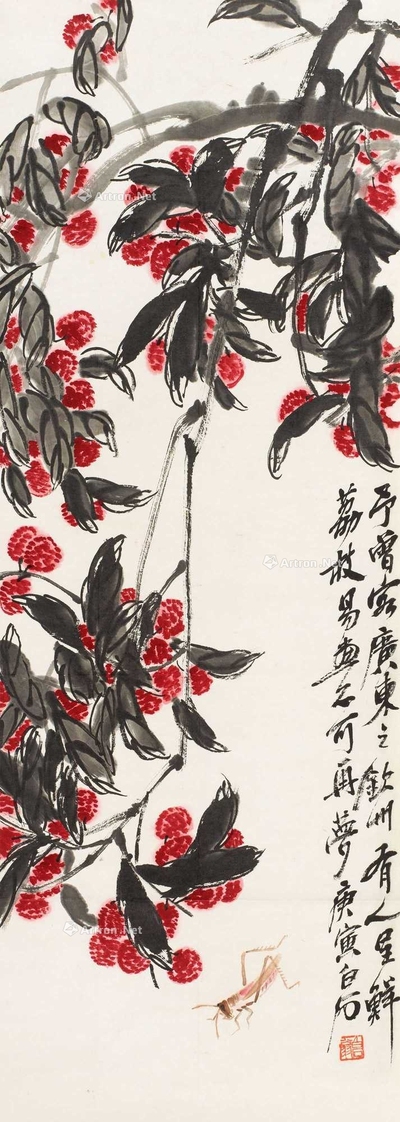 予曾客廣東之欽州有人呈鮮
荔枝易畫不可再夢庚寅白石
Artron.Net
Artron.Net
Artron.Net
Artron.Net